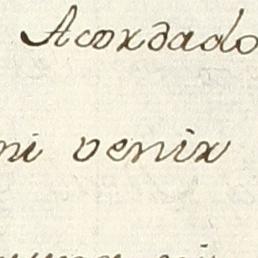 Acordado
ni venir